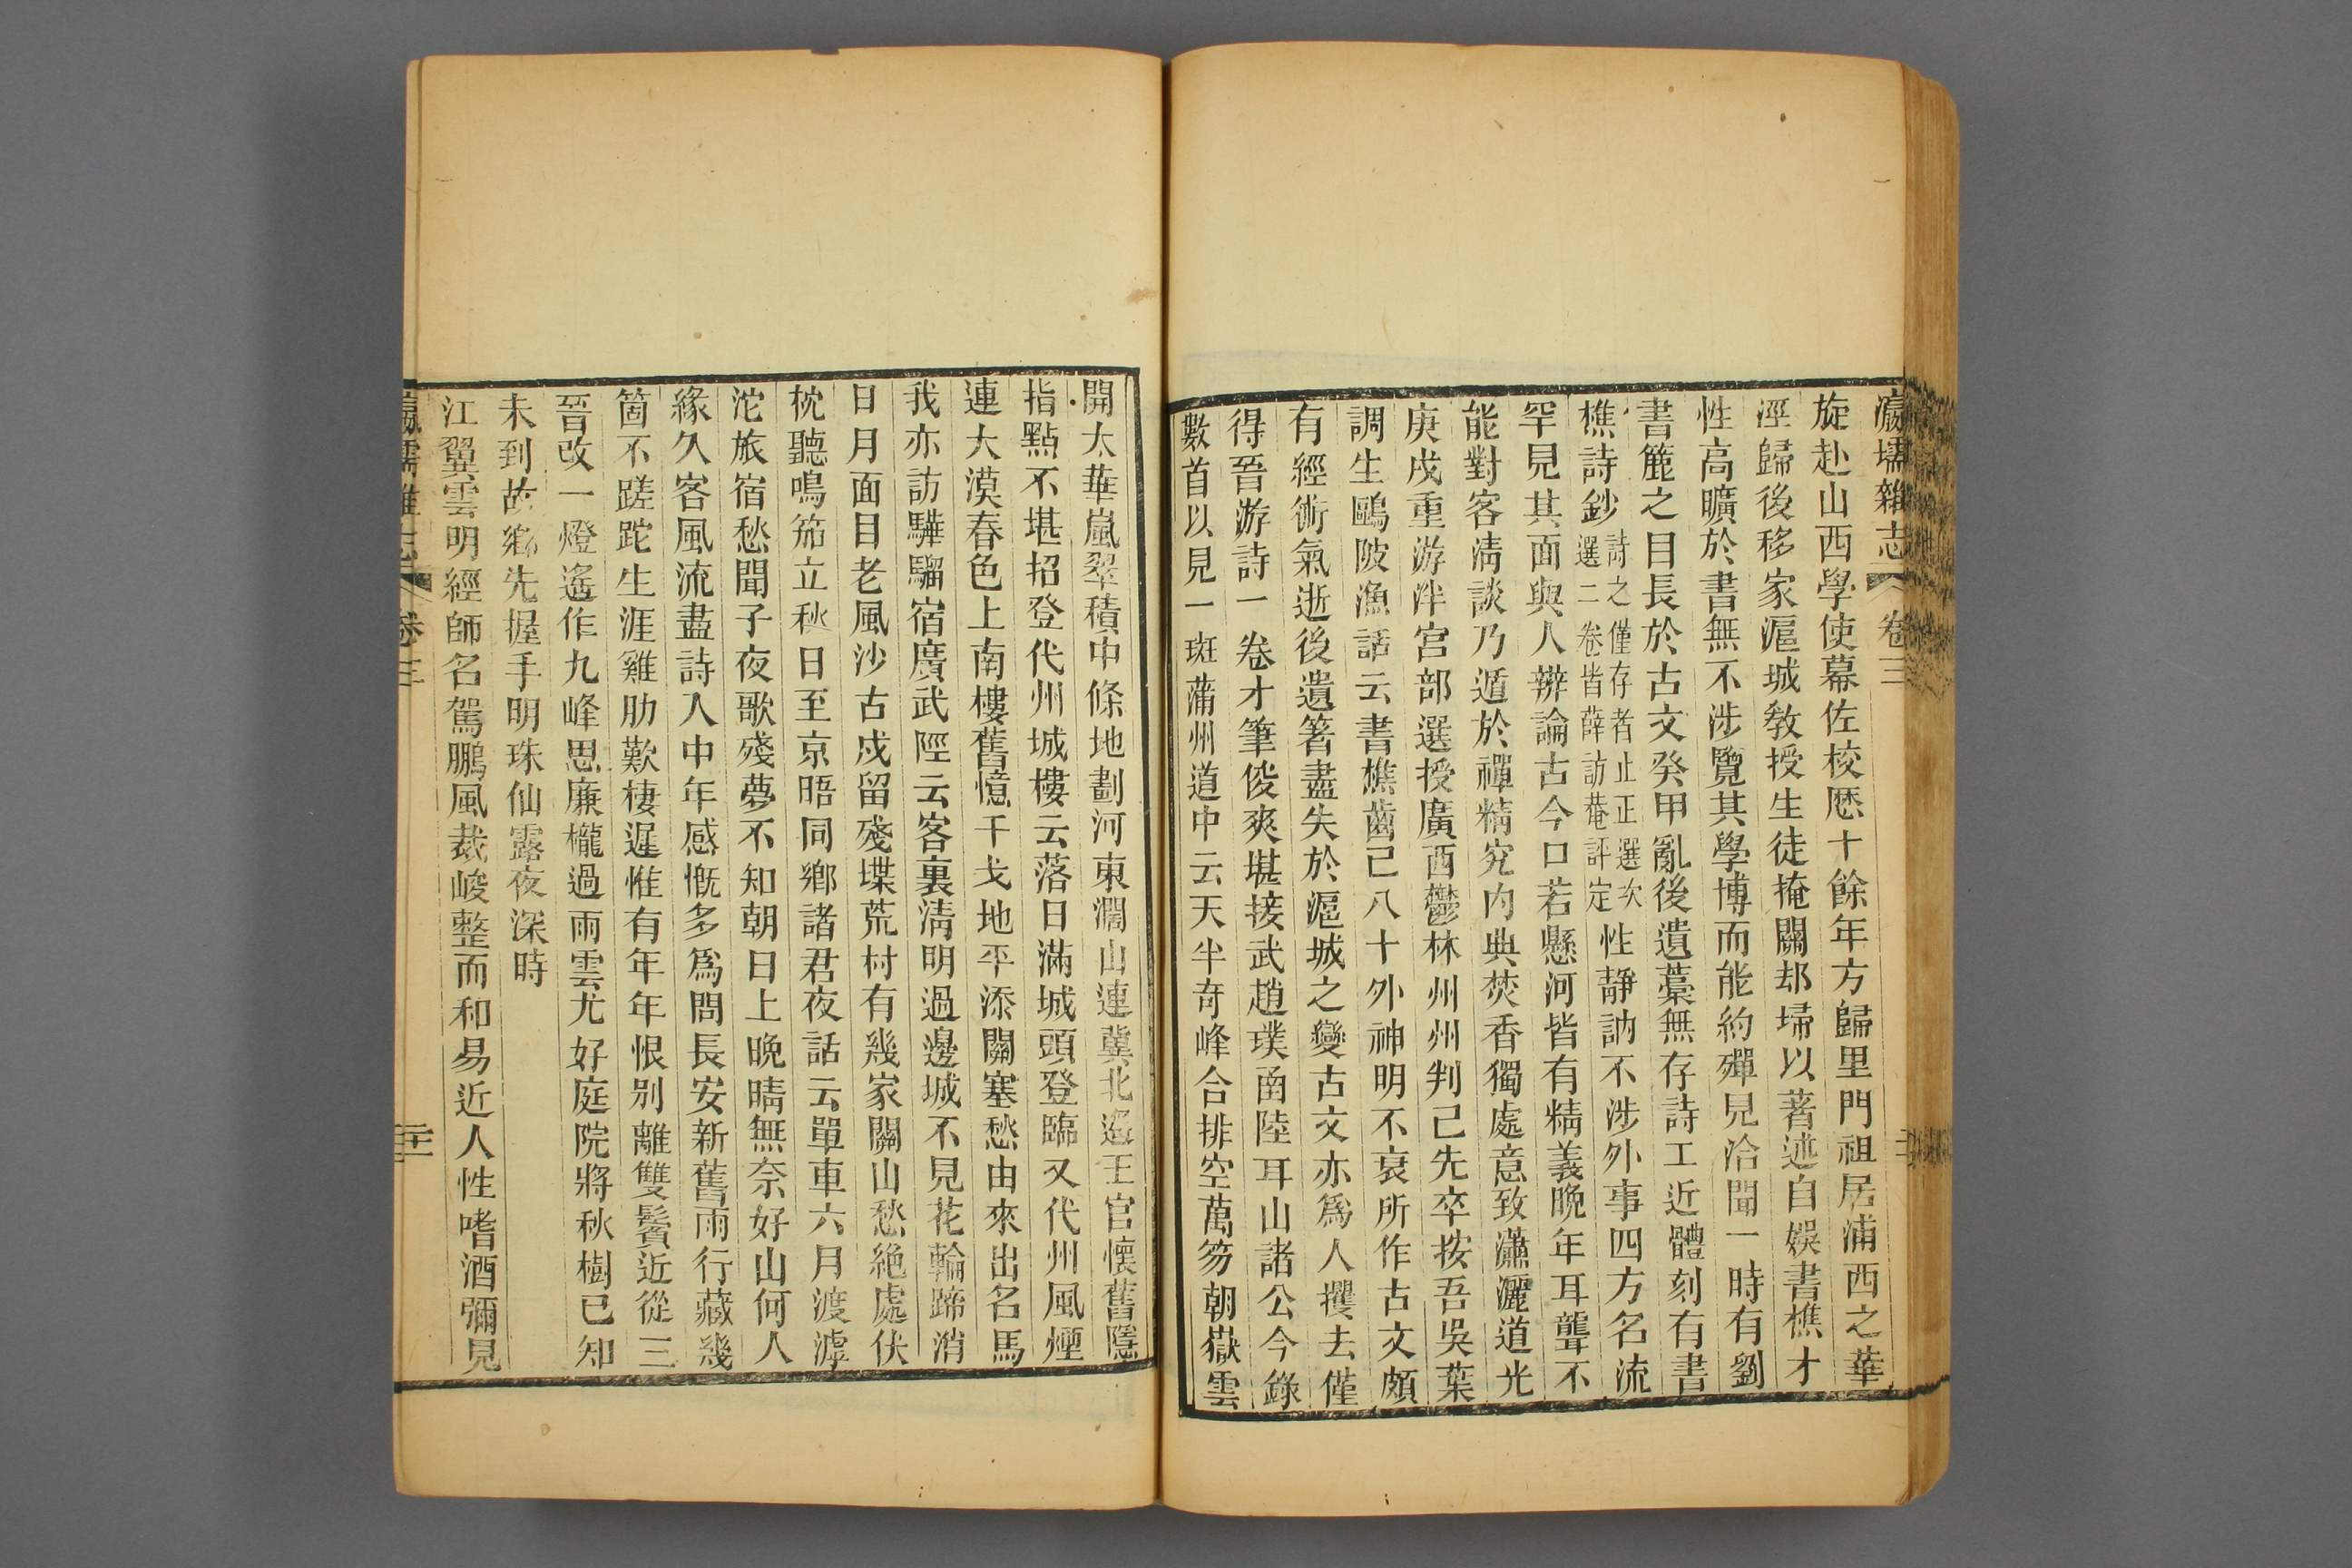 瀛壖雜志 卷三
旋赴山西學使幕佐校歷十餘年方歸里門祖居浦西之華
涇歸後移家滬城敎授生徒掩關却埽以著述自娛書樵才
性高曠於書無不涉覽其學博而能約殫見洽聞一時有劉
書簏之目長於古文癸甲亂後遺藁無存詩工近體刻有書
樵詩鈔詩之僅存者止正選次選二卷皆薛訪菴評定性靜訥不涉外事四方名流
罕見其面與人辨論古今口若懸河皆有精義晩年耳聾不
能對客淸談乃遁於禪精究内典焚香獨處意致瀟灑道光
庚戌重游泮宫部選授廣西鬱林州州判已先卒按吾吳葉
調生鷗陂漁話云書樵齒已八十外神明不衰所作古文頗
有經術氣逝後遺箸盡失於滬城之變古文亦爲人攫去僅
得晉游詩一卷才筆俊爽堪接武趙璞函陸耳山諸公今錄
數首以見一斑蒲州道中云天半奇峰合排空萬笏朝嶽雲
開太華嵐翠積中條地劃河東濶山連冀北遙王官懷舊隱
指點不堪招登代州城樓云落日滿城頭登臨又代州風煙
連大漠春色上南樓舊憶干戈地平添關塞愁由來出名馬
我亦訪驊騮宿廣武陘云客裏淸明過邊城不見花輪蹄消
日月面目老風沙古戍留殘堞荒村有幾家關山愁絶處伏
枕聽鳴笳立秋日至京晤同鄕諸君夜話云單車六月渡滹
沱旅宿愁聞子夜歌殘夢不知朝日上晩晴無奈好山何人
緣久客風流盡詩入中年感慨多爲問長安新舊雨行藏幾
箇不蹉跎生涯雞肋歎棲遲惟有年年恨别離雙鬢近從三
晉改一燈遙作九峰思廉櫳過雨雲尤好庭院將秋樹已知
未到故鄕先握手明珠仙露夜深時
江翼雲明經師名駕鵬風裁峻整而和易近人性嗜酒彌見
瀛壖雜志 卷三 二十二